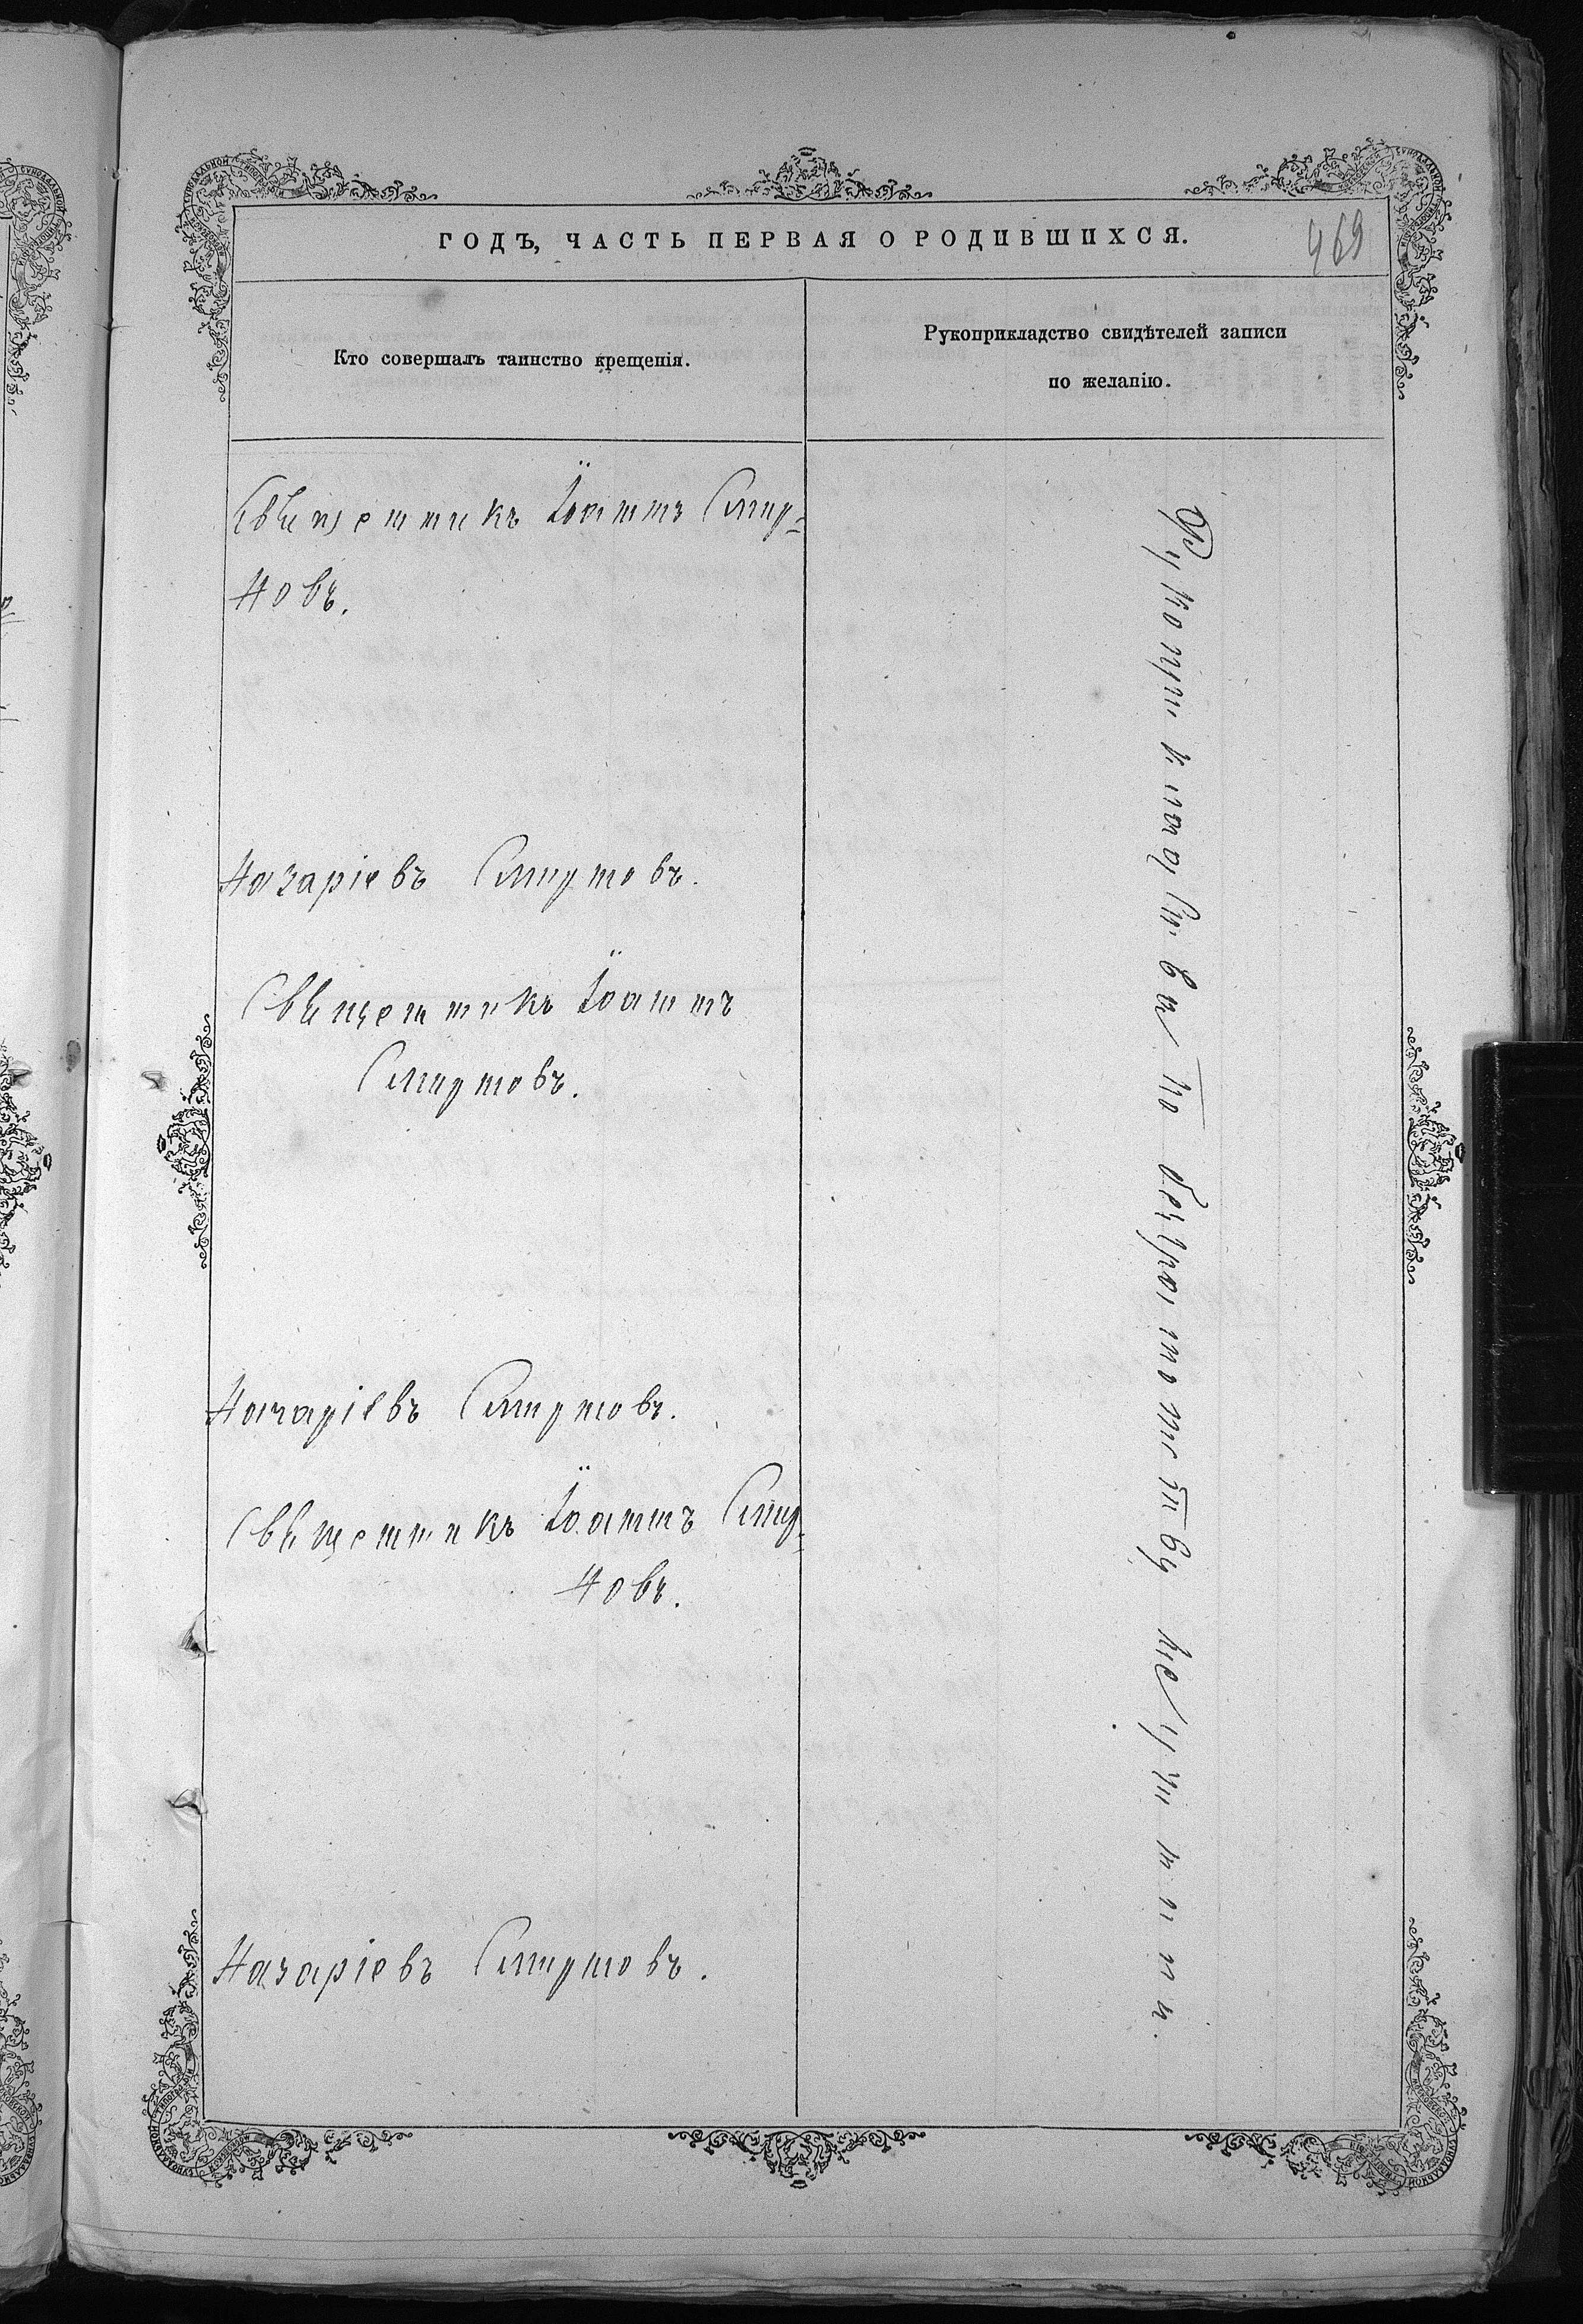 ГОДЪ, ЧАСТЬ ПЕРВАЯ О РОДИВШИХСЯ.
469
Кто совершалъ таинство крещенія.
Рукоприкладство свидѣтелей записи
по желанію.
Священникъ Іоаннъ Смир-
новъ.
Назаріевъ Смирновъ.
Священникъ Іоаннъ
Смирновъ.
Назаріевъ Смирновъ.
Священникъ Іоаннъ Смир-
новъ.
Назаріевъ Смирновъ.
Рукоприкладства по безграмотству не учинили.